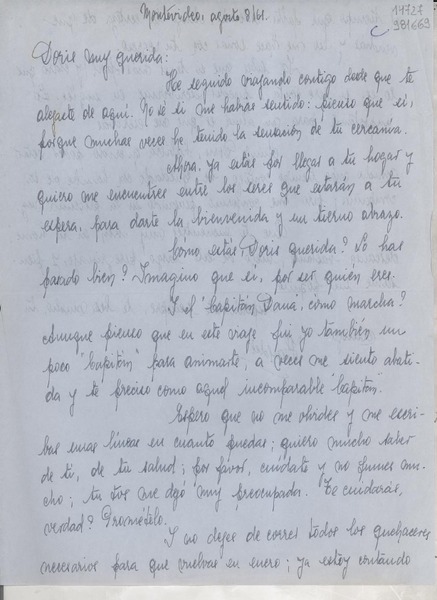 Montevideo, agosto 8/61.
19727
981669
C
Doris muy querida:
He seguido viajando contigo desde que te
alejaste de aquí. No sé si me habrás sentido: pienso que sí,
porque muchas veces he tenido la sensación de tu cercanía.
Ahora, ya estás por llegar a tu hogar y
quiero me encuentres entre los seres que estarán a tu
espera, para darte la bienvenida y un tierno abrazo.
Cómo estás, Doris querida? Lo has
pasado bien? Imagino que sí, por ser quien eres.
Y el "Capitán Dana", cómo marcha?
Aunque pienso que en este viaje fui yo también un
poco "Capitán" para animarte, a veces me siento abati-
da y te preciso como aquel incomparable Capitán.
Espero que no me olvides y me escri-
bas unas líneas en cuanto puedas; quiero mucho saber
de ti, de tu salud; por favor, cuídate y no fumes mu-
cho; tu tos me dejó muy preocupada. Te cuidarás,
verdad? Prométolo.
Y no dejes de correr todos los quehaceres
necesarios para que vuelvas en enero; ya estoy contando